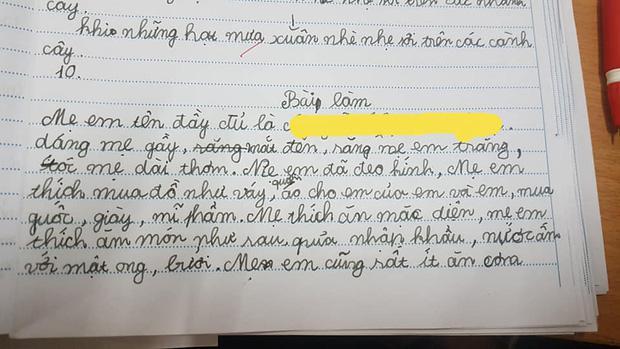 cây.
khio những hạu mưa xuân nhì nhẹ rơi trên các cành
cây.
10.
Bài làm
Mẹ em tên đầy đủ là
dáng mẹ gầy, mắt đen, răng mẹ em trắng,
tóc mẹ dài thơm. Mẹ em đã đeo kính, Mẹ em
thích mua đồ như váy, quần áo cho em của em và em, mua
guốc, giày, mĩ phẩm. Mẹ thích ăn mặc diện, mẹ em
thích ăm món như sau quửa nhập khẩu, nước ấm
với mật ong, bưởi. Mẹ em cũng rất ít ăn cơm